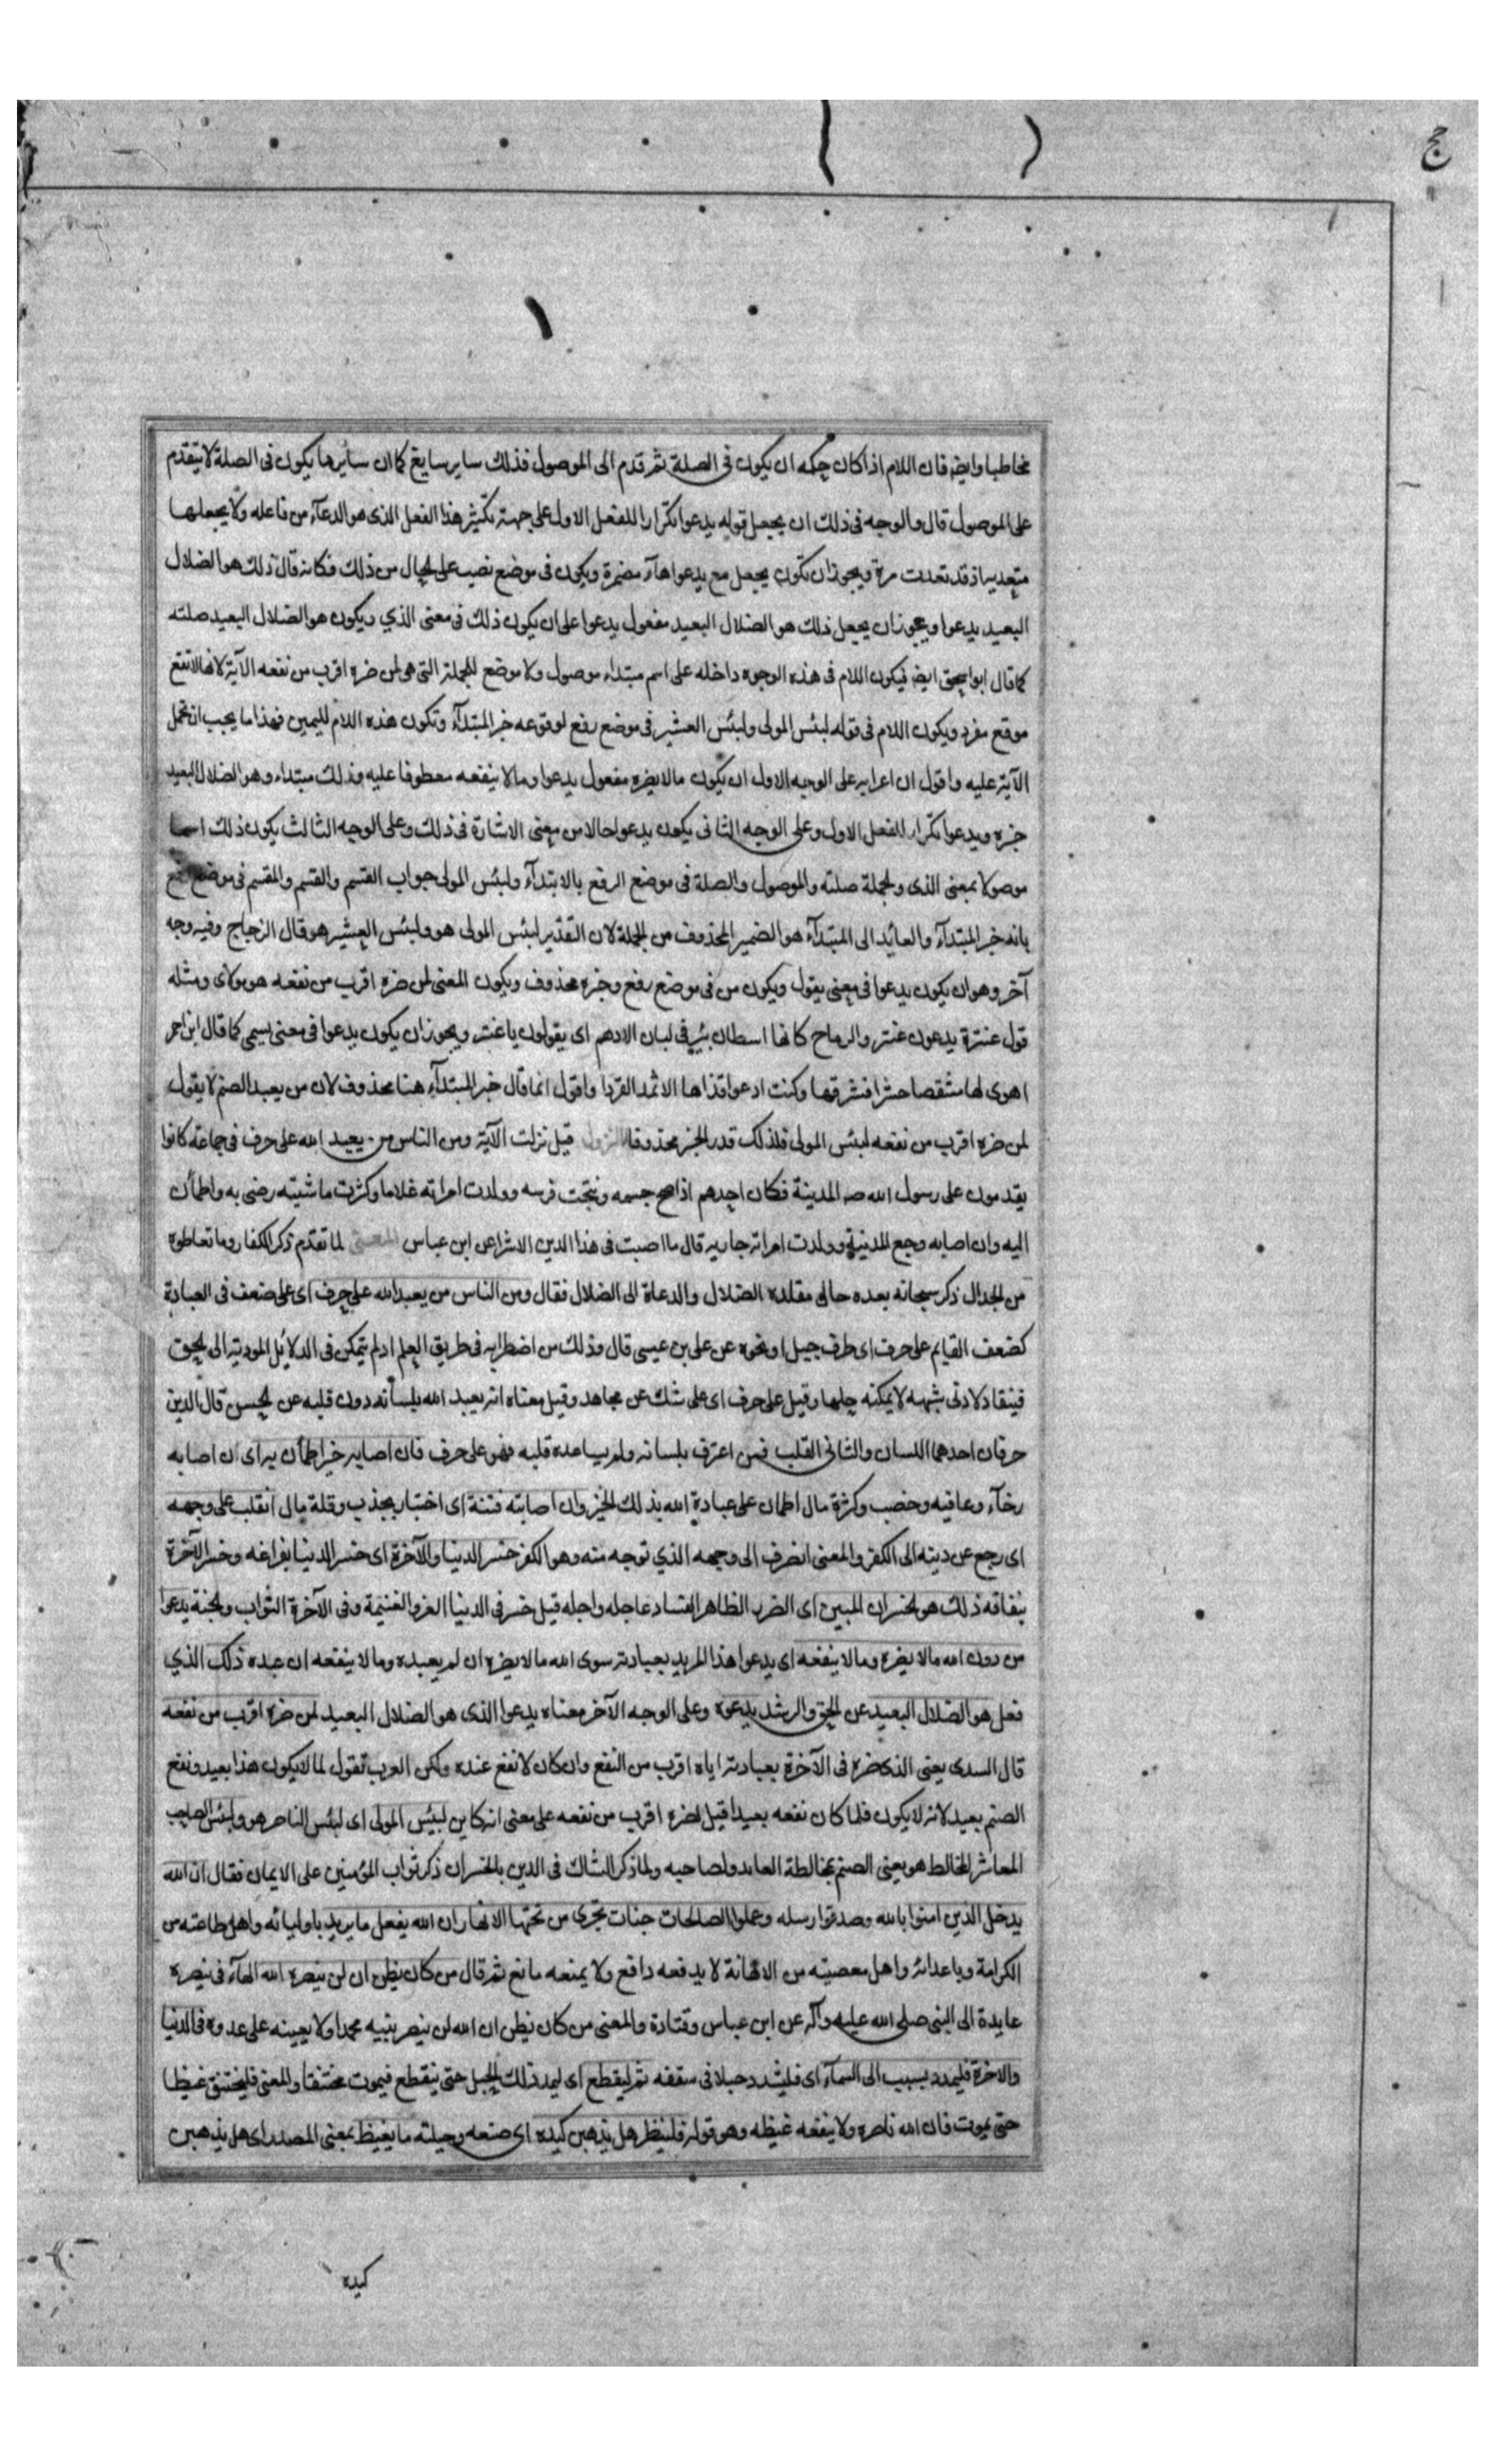 حج
مخاطبا وايضا فان اللام اذا كان حكمه ان يكون فى الصلة ثم قدم الى الموصول فذلك ساير سايغ كما ان سايرها يكون فى الصلة لا يتقدم
على الموصول قال والوجه فى ذلك ان يجعل قوله يدعوا تكرارا للفعل الاول على جهة تكثير هذا الفعل الذى هو الدعآء من فاعله ولا يجعلها
متعدية اذ قد تعدت مرة ويجوز ان تكون يجعل مع يدعوا هآء مضمرة ويكون فى موضع نصب على الحال من ذلك فكانه قال ذلك هو الضلال
البعيد يدعوا ويجوز ان يجعل ذلك هو الضلال البعيد مفعول يدعوا على ان يكون ذلك فى معنى الذي ويكون هو الضلال البعيد صلته
كما قال ابو اسحق ايضا فيكون اللام فى هذه الوجوه داخله على اسم مبتداء موصول ولا موضع للجملة التى هى لمن ضره اقرب من نفعه الآية لانها لا تقع
موقع مفرد ويكون اللام فى قوله لبئس المولى ولبئس العشير فى موضع رفع لوقوعه خبر المبتدآء وتكون هذه اللام لليمين فهذا ما يجب ان تحمل
الآية عليه واقول ان اعرابه على الوجه الاول ان يكون مالا يضره مفعول يدعوا وما لا ينفعه معطوفا عليه وذلك مبتداء وهو الضلال البعيد
خبره ويدعوا تكرار للفعل الاول وعلى الوجه الثانى يكون يدعوا حالا من معنى الاشارة فى ذلك وعلى الوجه الثالث يكون ذلك اسما
موصولا بمعنى الذى والجملة صلته والموصول والصلة فى موضع الرفع بالابتدآء ولبئس المولى جواب القسم والقسم والمقسم فى موضع رفع
بانه خبر المبتدآء والعائد الى المبتدآء هو الضمير المحذوف من الجملة لان التقدير لبئس المولى هو ولبئس العشير هو قال الزجاج وفيه وجه
آخر وهو ان يكون يدعوا فى معنى يقول ويكون من فى موضع رفع وخبره محذوف ويكون المعنى لمن ضره اقرب من نفعه هو مولاى ومثله
قول عنترة يدعون عنتر والرماح كانها اسطان بئر فى لبان الادهم اى يقولون يا عنتر ويجوز ان يكون يدعوا فى معنى يسمى كما قال ابن احمر
اهوى لها مشقصا حشرا فشرقها وكنت ادعوا قذاها الاثمد القردا واقول انما قال خبر المبتدآء هنا محذوف لان من يعبد الصنم لا يقول
لمن ضره اقرب من نفعه لبئس المولى فلذلك قدر الخبر محذوفا النزول قيل نزلت الآية ومن الناس من يعبد الله على حرف فى جماعة كانوا
يقدمون على رسول الله صـ المدينة فكان احدهم اذا صح جسمه ونتجت فرسه وولدت امراته غلاما وكثرت ماشيته رضى به واطمأن
اليه وان اصابه وجع المدينة وولدت امراته جاريه قال ما اصبت فى هذا الدين الا شرا عن ابن عباس المعنى لما تقدم ذكر الكفار وما تعاطوه
من الجدال ذكر سبحانه بعده حالى مقلده الضلال والدعاة الى الضلال فقال ومن الناس من يعبد الله على حرف اى على ضعف فى العبادة
كضعف القايم على حرف اى طرف جبل او نحوه عن على بن عيسى قال وذلك من اضطرابه فى طريق العلم اذ لم يتمكن فى الدلائل المودية الى الحق
فينقاد لادنى شبهه لا يمكنه حلها وقيل على حرف اى على شك عن مجاهد وقيل معناه انه يعبد الله بلسانه دون قلبه عن الحسن قال الدين
حرفان احدهما اللسان والثانى القلب فمن اعترف بلسانه ولم يساعده قلبه فهو على حرف فان اصابه خير اطمأن به اى ان اصابه
رخآء وعافيه وخصب وكثرة مال اطمان على عبادة الله بذلك الخير وان اصابته فتنة اى اختبار بجذب وقلة مال انقلب على وجهه
اى رجع عن دينه الى الكفر والمعنى انصرف الى وجهه الذي توجه منه وهو الكفر خسر الدنيا والآخرة اى خسر الدنيا بفراغه وخسر الآخرة
بنفاقه ذلك هو الخسران المبين اى الضرر الظاهر الفساد عاجله واجله قيل خسر فى الدنيا العز والغنيمة وفى الآخرة الثواب والجنة يدعوا
من دون الله مالا يضره وما لا ينفعه اى يدعوا هذا المريد بعبادته سوى الله مالا يضره ان لم يعبده وما لا ينفعه ان عبده ذلك الذي
فعل هو الضلال البعيد عن الحق والرشد يدعوه وعلى الوجه الآخر معناه يدعوا الذى هو الضلال البعيد لمن ضره اقرب من نفعه
قال السدى يعنى الذى ضره فى الآخرة بعبادته اياه اقرب من النفع وان كان لا نفع عنده ولكن العرب تقول لما لا يكون هذا بعيد ونفع
الصنم بعيد لانه لا يكون فلما كان نفعه بعيدا قيل لضره اقرب من نفعه على معنى انه كاين لبئس المولى اى لبئس الناصر هو ولبئس الصاحب
المعاشر المخالط هو يعنى الصنم بمخالطة العابد ولصاحبه ولما ذكر الشاك فى الدين بالخسران ذكر ثواب المؤمنين على الايمان فقال ان الله
يدخل الذين امنوا بالله وصدقوا رسله وعملوا الصالحات جنات تجرى من تحتها الانهار ان الله يفعل ما يريد باوليائه واهل طاعته من
الكرامة وباعدائه واهل معصيته من الاهانة لا يدفعه دافع ولا يمنعه مانع ثم قال من كان يظن ان لن ينصره الله الهآء فى ينصره
عايدة الى النبى صلى الله عليه وآله عن ابن عباس وقتادة والمعنى من كان يظن ان الله لن ينصر نبيه محمدا ولا يعينه على عدوه فى الدنيا
والاخرة فليمدد بسبب الى السمآء اى فليشدد حبلا فى سقفه ثم ليقطع اى ليمد ذلك الحبل حتى ينقطع فيموت مختنقا والمعنى فليختنق غيظا
حتى يموت فان الله ناصره ولا ينفعه غيظه وهو قوله فلينظر هل يذهبن كيده اى صنعه وحيلته ما يغيظ بمعنى المصدر اى هل يذهبن
كيده